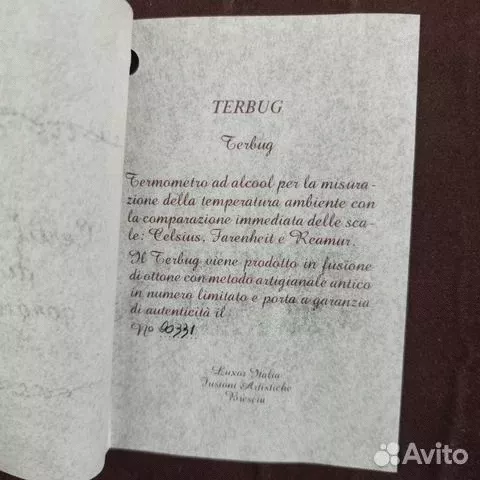 TERBUG
Terbug
Termometro ad alcool per la misura-
zione della temperatura ambiente con
la comparazione immediata delle sca-
le: Celsius, Farenheit e Reamur.
Il Terbug viene prodotto in fusione
di ottone con metodo artigianale antico
in numero limitato e porta a garanzia
di autenticità il:
No 00331
Luxor Italia
Fusioni Artistiche
Brescia
Avito